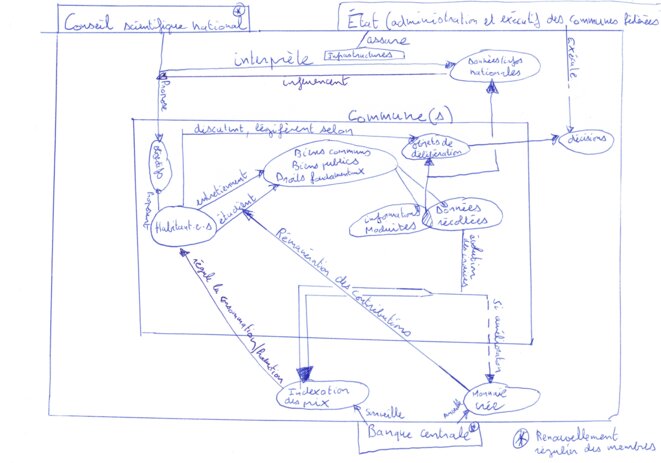 Conseil scientifique national
État (administration et exécutif des communes fédérées
assure
Infrastructures
interprète
influencent
Données/infos
nationales
exécute
Propose
Commune(s)
discutent, légifèrent selon
objets de
délibération
décisions
objectifs
Biens communs
Biens publics
Droits fondamentaux
entretiennent
étudient
proposent
Habitant·e·s
informations
produites
Données
récoltées
évolution
des mesures
Rémunération des contributions
Si amélioration
régule la consommation/
Indexation
des prix
Monnaie
créée
surveille
Banque Centrale
Renouvellement
régulier des membres